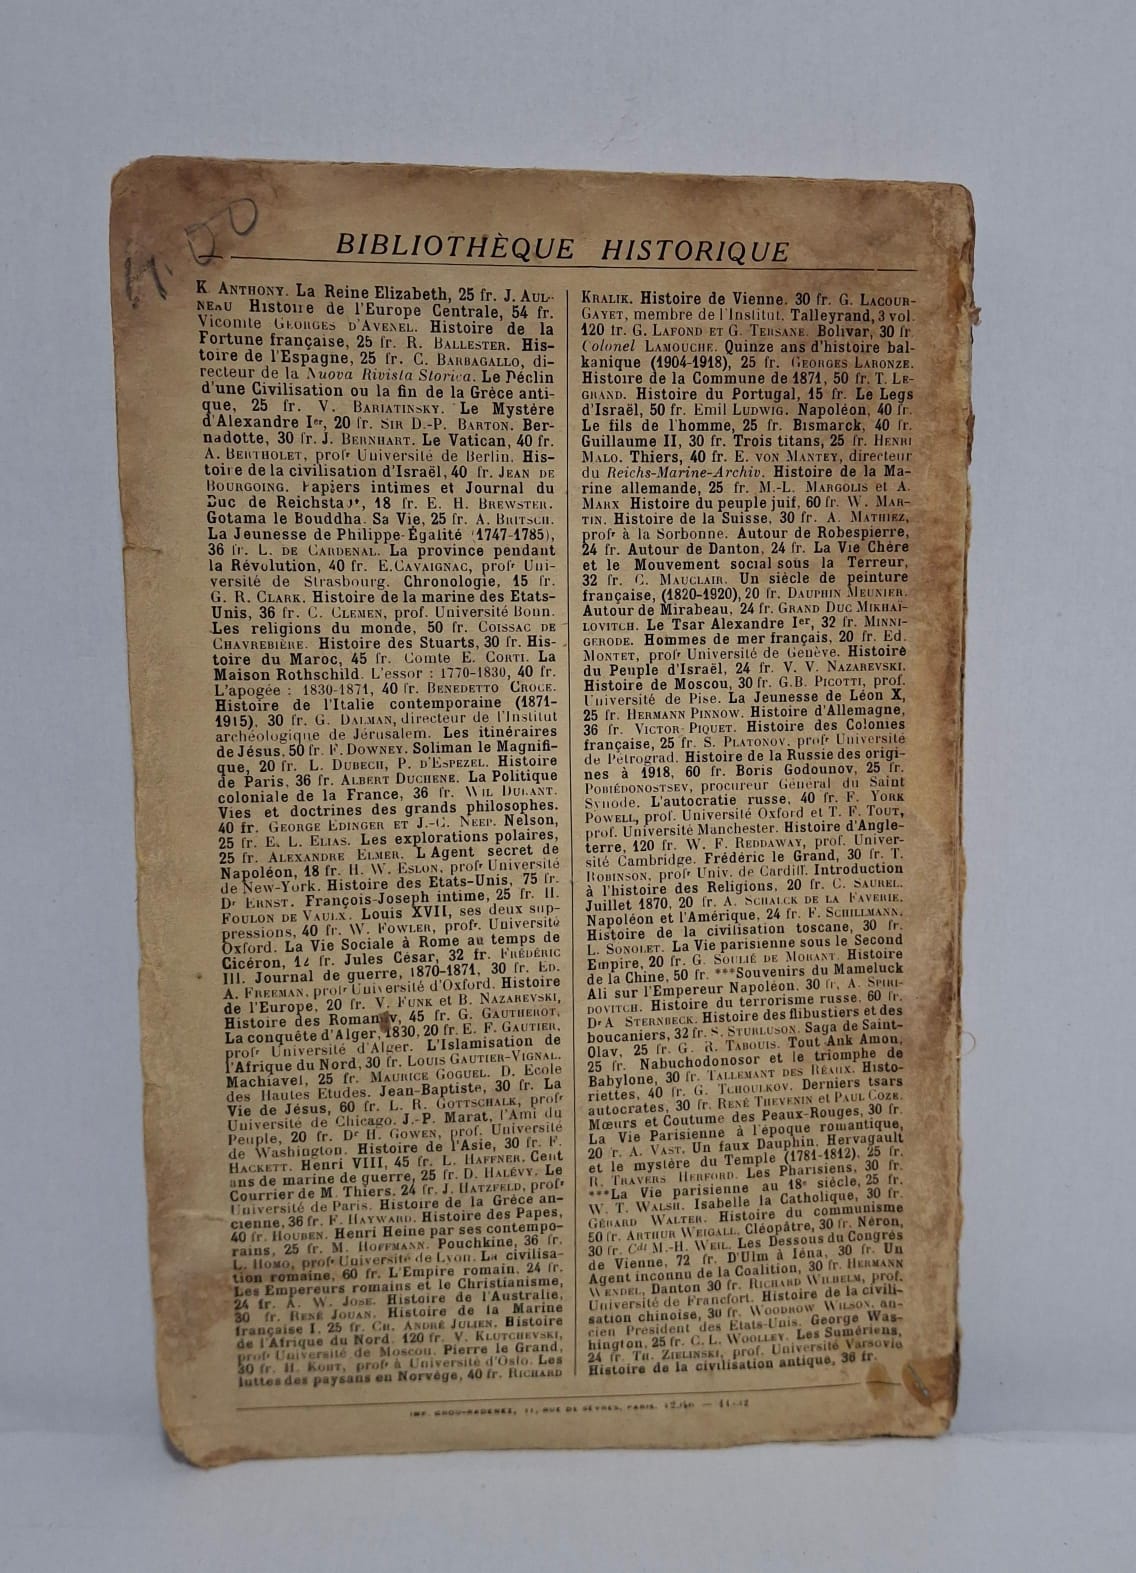 BIBLIOTHÈQUE HISTORIQUE
K ANTHONY. La Reine Elizabeth, 25 fr. J. AUL-
NEAU Histoire de l'Europe Centrale, 54 fr.
Vicomte GEORGES D'AVENEL. Histoire de la
Fortune française, 25 fr. R. BALLESTER. His-
toire de l'Espagne, 25 fr. C. BARBAGALLO, di-
recteur de la Nuova Rivista Storica. Le Déclin
d'une Civilisation ou la fin de la Grèce anti-
que, 25 fr. V. BARIATINSKY. Le Mystère
d'Alexandre Ier, 20 fr. SIR D.-P. BARTON. Ber-
nadotte, 30 fr. J. BERNHART. Le Vatican, 40 fr.
A. BERTHOLET, profr Université de Berlin. His-
toire de la civilisation d'Israël, 40 fr. JEAN DE
BOURGOING. Papiers intimes et Journal du
Duc de Reichstadt, 18 fr. E. H. BREWSTER.
Gotama le Bouddha. Sa Vie, 25 fr. A. BRITSCH.
La Jeunesse de Philippe-Égalité (1747-1785),
36 fr. L. DE CARDENAL. La province pendant
la Révolution, 40 fr. E. CAVAIGNAC, profr Uni-
versité de Strasbourg. Chronologie, 15 fr.
G. R. CLARK. Histoire de la marine des Etats-
Unis, 36 fr. C. CLEMEN, prof. Université Bonn.
Les religions du monde, 50 fr. COISSAC DE
CHAVREBIÈRE. Histoire des Stuarts, 30 fr. His-
toire du Maroc, 45 fr. Comte E. CORTI. La
Maison Rothschild. L'essor : 1770-1830, 40 fr.
L'apogée : 1830-1871, 40 fr. BENEDETTO CROCE.
Histoire de l'Italie contemporaine (1871-
1915). 30 fr. G. DALMAN, directeur de l'Institut
archéologique de Jérusalem. Les itinéraires
de Jésus, 50 fr. F. DOWNEY. Soliman le Magnifi-
que, 20 fr. L. DUBECH, P. D'ESPEZEL. Histoire
de Paris, 36 fr. ALBERT DUCHENE. La Politique
coloniale de la France, 36 fr. WIL DURANT.
Vies et doctrines des grands philosophes.
40 fr. GEORGE EDINGER ET J.-C. NEEP. Nelson,
25 fr. E. L. ELIAS. Les explorations polaires,
25 fr. ALEXANDRE ELMER. L'Agent secret de
Napoléon, 18 fr. H. W. ESLON, profr Université
de New-York. Histoire des Etats-Unis, 75 fr.
Dr ERNST. François-Joseph intime, 25 fr. H.
FOULON DE VAULX. Louis XVII, ses deux sup-
pressions, 40 fr. W. FOWLER, profr. Université
Oxford. La Vie Sociale à Rome au temps de
Cicéron, 12 fr. Jules César, 32 fr. FRÉDÉRIC
III. Journal de guerre, 1870-1871, 30 fr. ED.
A. FREEMAN, profr Université d'Oxford. Histoire
de l'Europe, 20 fr. V. FUNK et B. NAZAREVSKI,
Histoire des Romanov, 45 fr. G. GAUTHEROT,
La conquête d'Alger, 1830, 20 fr. E. F. GAUTIER,
profr Université d'Alger. L'Islamisation de
l'Afrique du Nord, 30 fr. LOUIS GAUTIER-VIGNAL.
Machiavel, 25 fr. MAURICE GOGUEL. D. Ecole
des Hautes Etudes. Jean-Baptiste, 30 fr. La
Vie de Jésus, 60 fr. L. R. GOTTSCHALK, profr
Université de Chicago. J.-P. Marat, l'Ami du
Peuple, 20 fr. Dr H. GOWEN, prof. Université
de Washington. Histoire de l'Asie, 30 fr. F.
HACKETT. Henri VIII, 45 fr. L. HAFFNER. Cent
ans de marine de guerre, 25 fr. D. HALÉVY. Le
Courrier de M. Thiers. 24 fr. J. HATZFELD, profr
Université de Paris. Histoire de la Grèce an-
cienne, 36 fr. F. HAYWARD. Histoire des Papes,
40 fr. HOUBEN. Henri Heine par ses contempo-
rains, 25 fr. M. HOFFMANN. Pouchkine, 36 fr.
L. HOMO, profr Université de Lyon. La civilisa-
tion romaine, 60 fr. L'Empire romain. 24 fr.
Les Empereurs romains et le Christianisme,
24 fr. A. W. JOSE. Histoire de l'Australie,
30 fr. RENÉ JOUAN. Histoire de la Marine
française I, 25 fr. CH. ANDRÉ JULIEN. Histoire
de l'Afrique du Nord. 120 fr. V. KLUTCHEVSKI,
profr Université de Moscou. Pierre le Grand,
30 fr. H. KOHT, profr à Université d'Oslo. Les
luttes des paysans en Norvège, 40 fr. RICHARD
KRALIK. Histoire de Vienne. 30 fr. G. LACOUR-
GAYET, membre de l'Institut. Talleyrand, 3 vol.
120 fr. G. LAFOND ET G. TERSANE. Bolivar, 30 fr.
Colonel LAMOUCHE. Quinze ans d'histoire bal-
kanique (1904-1918), 25 fr. GEORGES LARONZE.
Histoire de la Commune de 1871, 50 fr. T. LE-
GRAND. Histoire du Portugal, 15 fr. Le Legs
d'Israël, 50 fr. Emil LUDWIG. Napoléon, 40 fr.
Le fils de l'homme, 25 fr. Bismarck, 40 fr.
Guillaume II, 30 fr. Trois titans, 25 fr. HENRI
MALO. Thiers, 40 fr. E. VON MANTEY, directeur
du Reichs-Marine-Archiv. Histoire de la Ma-
rine allemande, 25 fr. M.-L. MARGOLIS et A.
MARX Histoire du peuple juif, 60 fr. W. MAR-
TIN. Histoire de la Suisse, 30 fr. A. MATHIEZ,
profr à la Sorbonne. Autour de Robespierre,
24 fr. Autour de Danton, 24 fr. La Vie Chère
et le Mouvement social sous la Terreur,
32 fr. C. MAUCLAIR. Un siècle de peinture
française, (1820-1920), 20 fr. DAUPHIN MEUNIER.
Autour de Mirabeau, 24 fr. GRAND DUC MIKHAÏ-
LOVITCH. Le Tsar Alexandre Ier, 32 fr. MINNI-
GERODE. Hommes de mer français, 20 fr. ED.
MONTET, profr Université de Genève. Histoire
du Peuple d'Israël, 24 fr. V. V. NAZAREVSKI.
Histoire de Moscou, 30 fr. G.B. PICOTTI, prof.
Université de Pise. La Jeunesse de Léon X,
25 fr. HERMANN PINNOW. Histoire d'Allemagne,
36 fr. VICTOR PIQUET. Histoire des Colonies
française, 25 fr. S. PLATONOV. profr Université
de Pétrograd. Histoire de la Russie des origi-
nes à 1918, 60 fr. Boris Godounov, 25 fr.
POBIÉDONOSTSEV, procureur Général du Saint
Synode. L'autocratie russe, 40 fr. F. YORK
POWELL, prof. Université Oxford et T. F. TOUT,
prof. Université Manchester. Histoire d'Angle-
terre, 120 fr. W. F. REDDAWAY, prof. Univer-
sité Cambridge. Frédéric le Grand, 30 fr. T.
ROBINSON, profr Univ. de Cardiff. Introduction
à l'histoire des Religions, 20 fr. C. SAUREL.
Juillet 1870, 20 fr. A. SCHALCK DE LA FAVERIE.
Napoléon et l'Amérique, 24 fr. F. SCHILLMANN.
Histoire de la civilisation toscane, 30 fr.
L. SONOLET. La Vie parisienne sous le Second
Empire, 20 fr. G. SOULIÉ DE MORANT. Histoire
de la Chine, 50 fr. ***Souvenirs du Mameluck
Ali sur l'Empereur Napoléon. 30 fr, A. SPIRI-
DOVITCH. Histoire du terrorisme russe. 60 fr.
Dr A STERNBECK. Histoire des flibustiers et des
boucaniers, 32 fr. S. STURLUSON. Saga de Saint-
Olav, 25 fr. G. R. TABOUIS. Tout Ank Amon,
25 fr. Nabuchodonosor et le triomphe de
Babylone, 30 fr. TALLEMANT DES RÉAUX. Histo-
riettes, 40 fr. G. TCHOULKOV. Derniers tsars
autocrates, 30 fr. RENÉ THEVENIN et PAUL COZE.
Mœurs et Coutume des Peaux-Rouges, 30 fr.
La Vie Parisienne à l'époque romantique,
20 r. A. VAST. Un faux Dauphin. Hervagault
et le mystère du Temple (1781-1812), 25 fr.
R. TRAVERS HERFORD. Les Pharisiens, 30 fr.
***La Vie parisienne au 18e siècle, 25 fr.
W. T. WALSH. Isabelle la Catholique, 30 fr.
GÉRARD WALTER. Histoire du communisme
50 fr. ARTHUR WEIGALL. Cléopâtre, 30 fr. Néron,
30 fr. Cdt M.-H. WEIL. Les Dessous du Congrès
de Vienne, 72 fr. D'Ulm à Iéna, 30 fr. Un
Agent inconnu de la Coalition, 30 fr. HERMANN
WENDEL, Danton 30 fr. RICHARD WILHELM, prof.
Université de Francfort. Histoire de la civili-
sation chinoise, 30 fr. WOODROW WILSON, an-
cien Président des États-Unis. George Was-
hington, 25 fr. C. L. WOOLLEY. Les Sumériens,
24 fr. TH. ZIELINSKI, prof. Université Varsovie
Histoire de la civilisation antique, 36 fr.
IMP. CROU-RADENEZ, 11, RUE DE SÈVRES, PARIS.